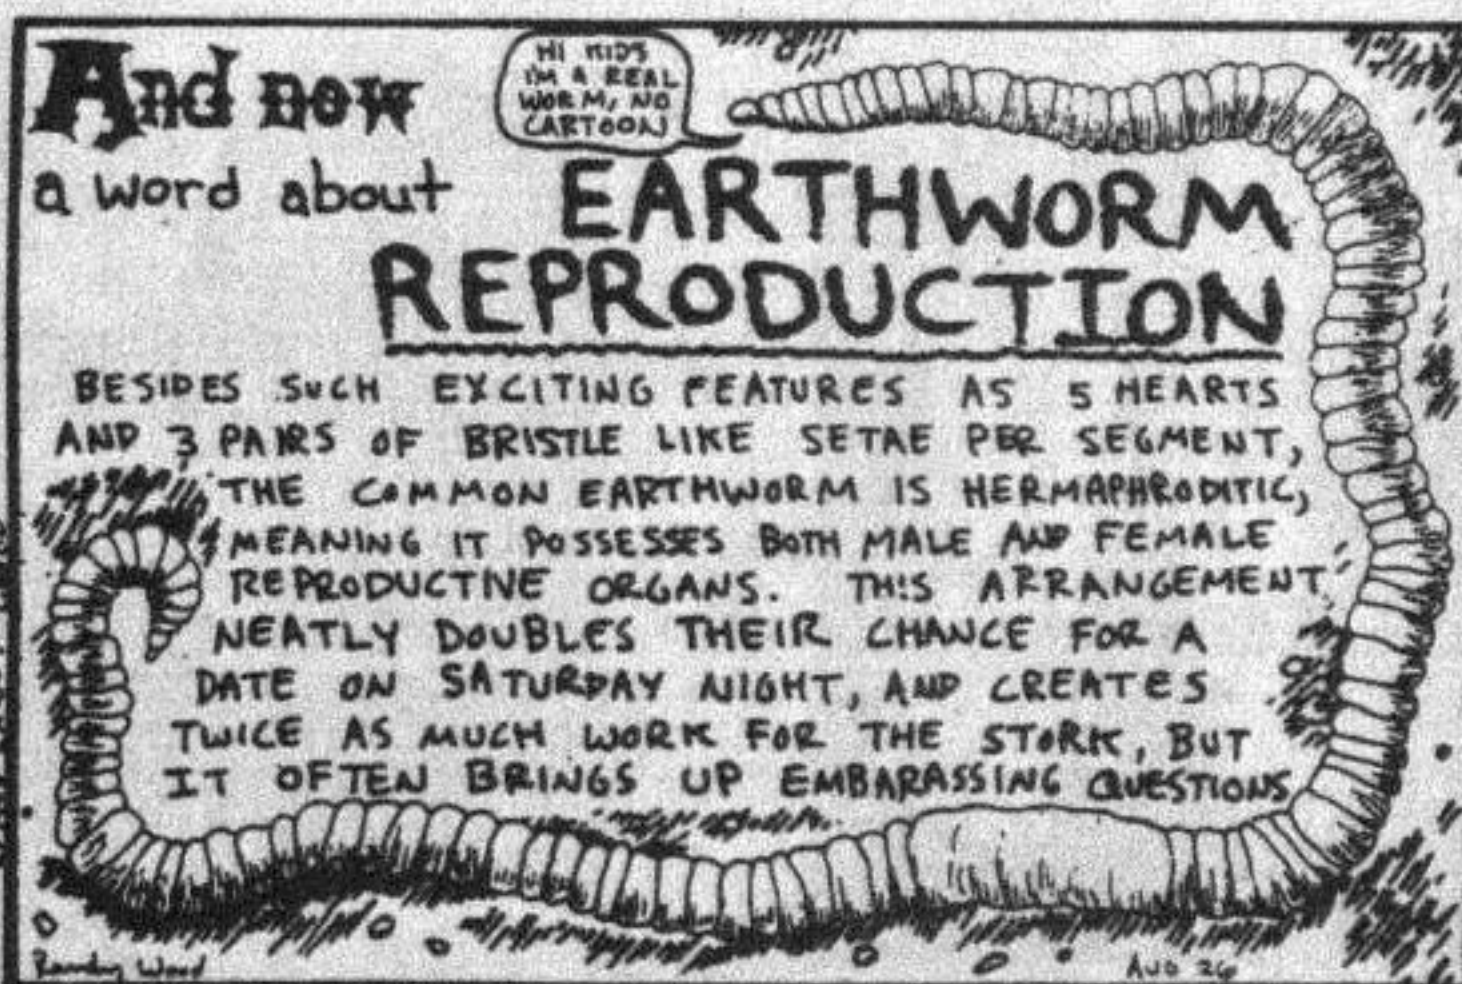 And now
a word about
HI KIDS
I'M A REAL
WORM, NO
CARTOON
EARTHWORM
REPRODUCTION
BESIDES SUCH EXCITING FEATURES AS 5 HEARTS
AND 3 PAIRS OF BRISTLE LIKE SETAE PER SEGMENT,
THE COMMON EARTHWORM IS HERMAPHRODITIC,
MEANING IT POSSESSES BOTH MALE AND FEMALE
REPRODUCTIVE ORGANS. THIS ARRANGEMENT
NEATLY DOUBLES THEIR CHANCE FOR A
DATE ON SATURDAY NIGHT, AND CREATES
TWICE AS MUCH WORK FOR THE STORK, BUT
IT OFTEN BRINGS UP EMBARASSING QUESTIONS
Randy Wood
AUG 26